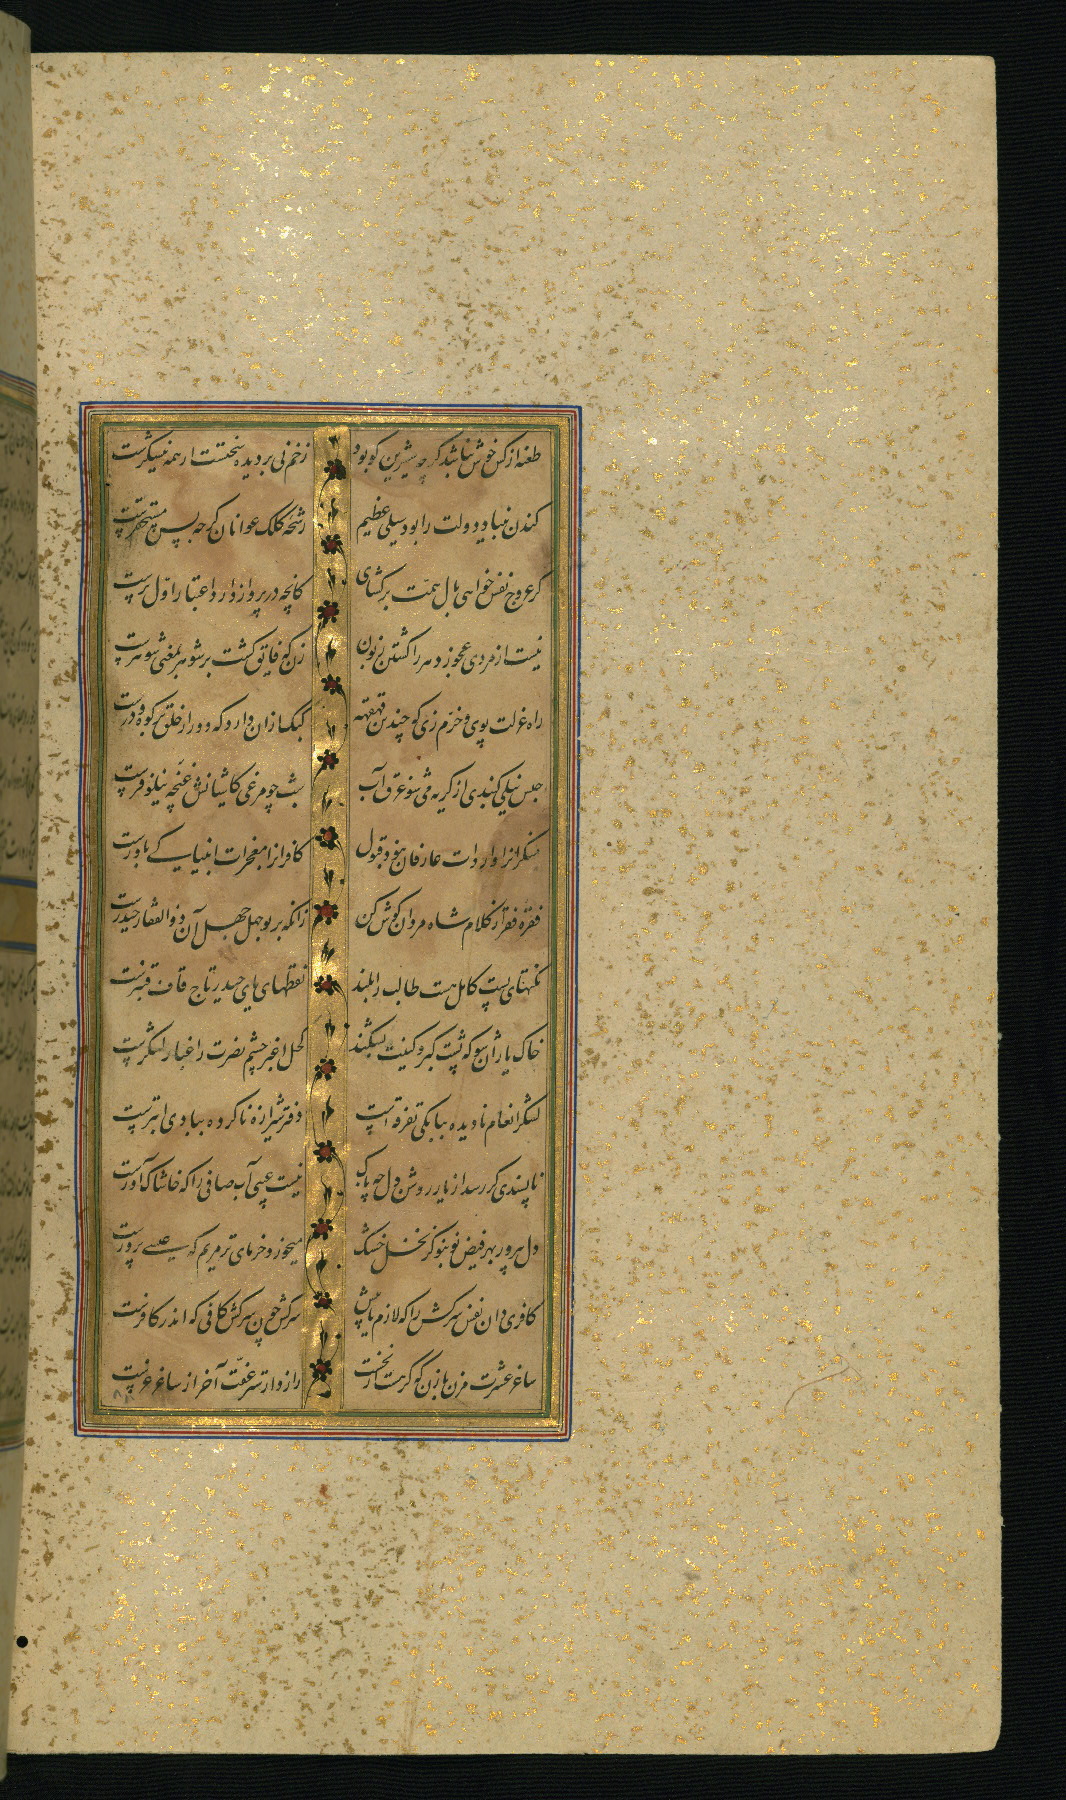 طعنه از کس خوش نباشد کرچه شیرین کو بود زخم نی بر دیده سختست ار همه نیشکرست
کندن بنیاد دولت را بود سیلی عظیم رشحه کلک عوانان کرچه بس مستحقرست
کر عروج نفس خواهی بال همت برکشای کانچه در پرواز دارد اعتبار اول پرست
نیست از مردی عجوز دهر را کشتن زبون زن که فایق کشت بر شوهر بمعنی شوهرست
راه عزلت پوی و خرم زی که چندین قهقهه کبک ازان دارد که دور از خلق در کوه و درست
حبس نیلی کنبدی از کریه می شو غرق آب شب چو مرغی کاشیانش غنچه نیلوفرست
منکر انرا واردات عارفان نبود قبول کافرانرا معجزات انبیا کی باورست
فقره فقر از کلام شاه مردان کوش کن زانکه بر بوجهل جهل آن ذوالفقار حیدرست
نکتهای پست کامل هست طالب را بلند نقطهای یای حیدر تاج قاف قنبرست
خاک پای ژان شو که پشت کبر و کینت بشکند کحل اغبر چشم نصرت را غبار لشکرست
لشکر انعام نادیده ببانکی تفرقه است دفتر شیرازه ناکرده ببادی ابترست
ناپسندی کر رسد از یار روشن دل چه باک نیست عیبی آب صافی را که خاشاک آورست
دل بپرور بهر فیض نو بنو کز نخل خشک میخورد خرمای تر مریم که عیسی پرورست
کافری دان نفس سرکش را که لازم یابیش سرکشی چون سرکش کافی که اندر کافرست
ساغر عشرت مزن با زن که کر هست از نخست رازدار تست عفت آخر از ساغر غرست